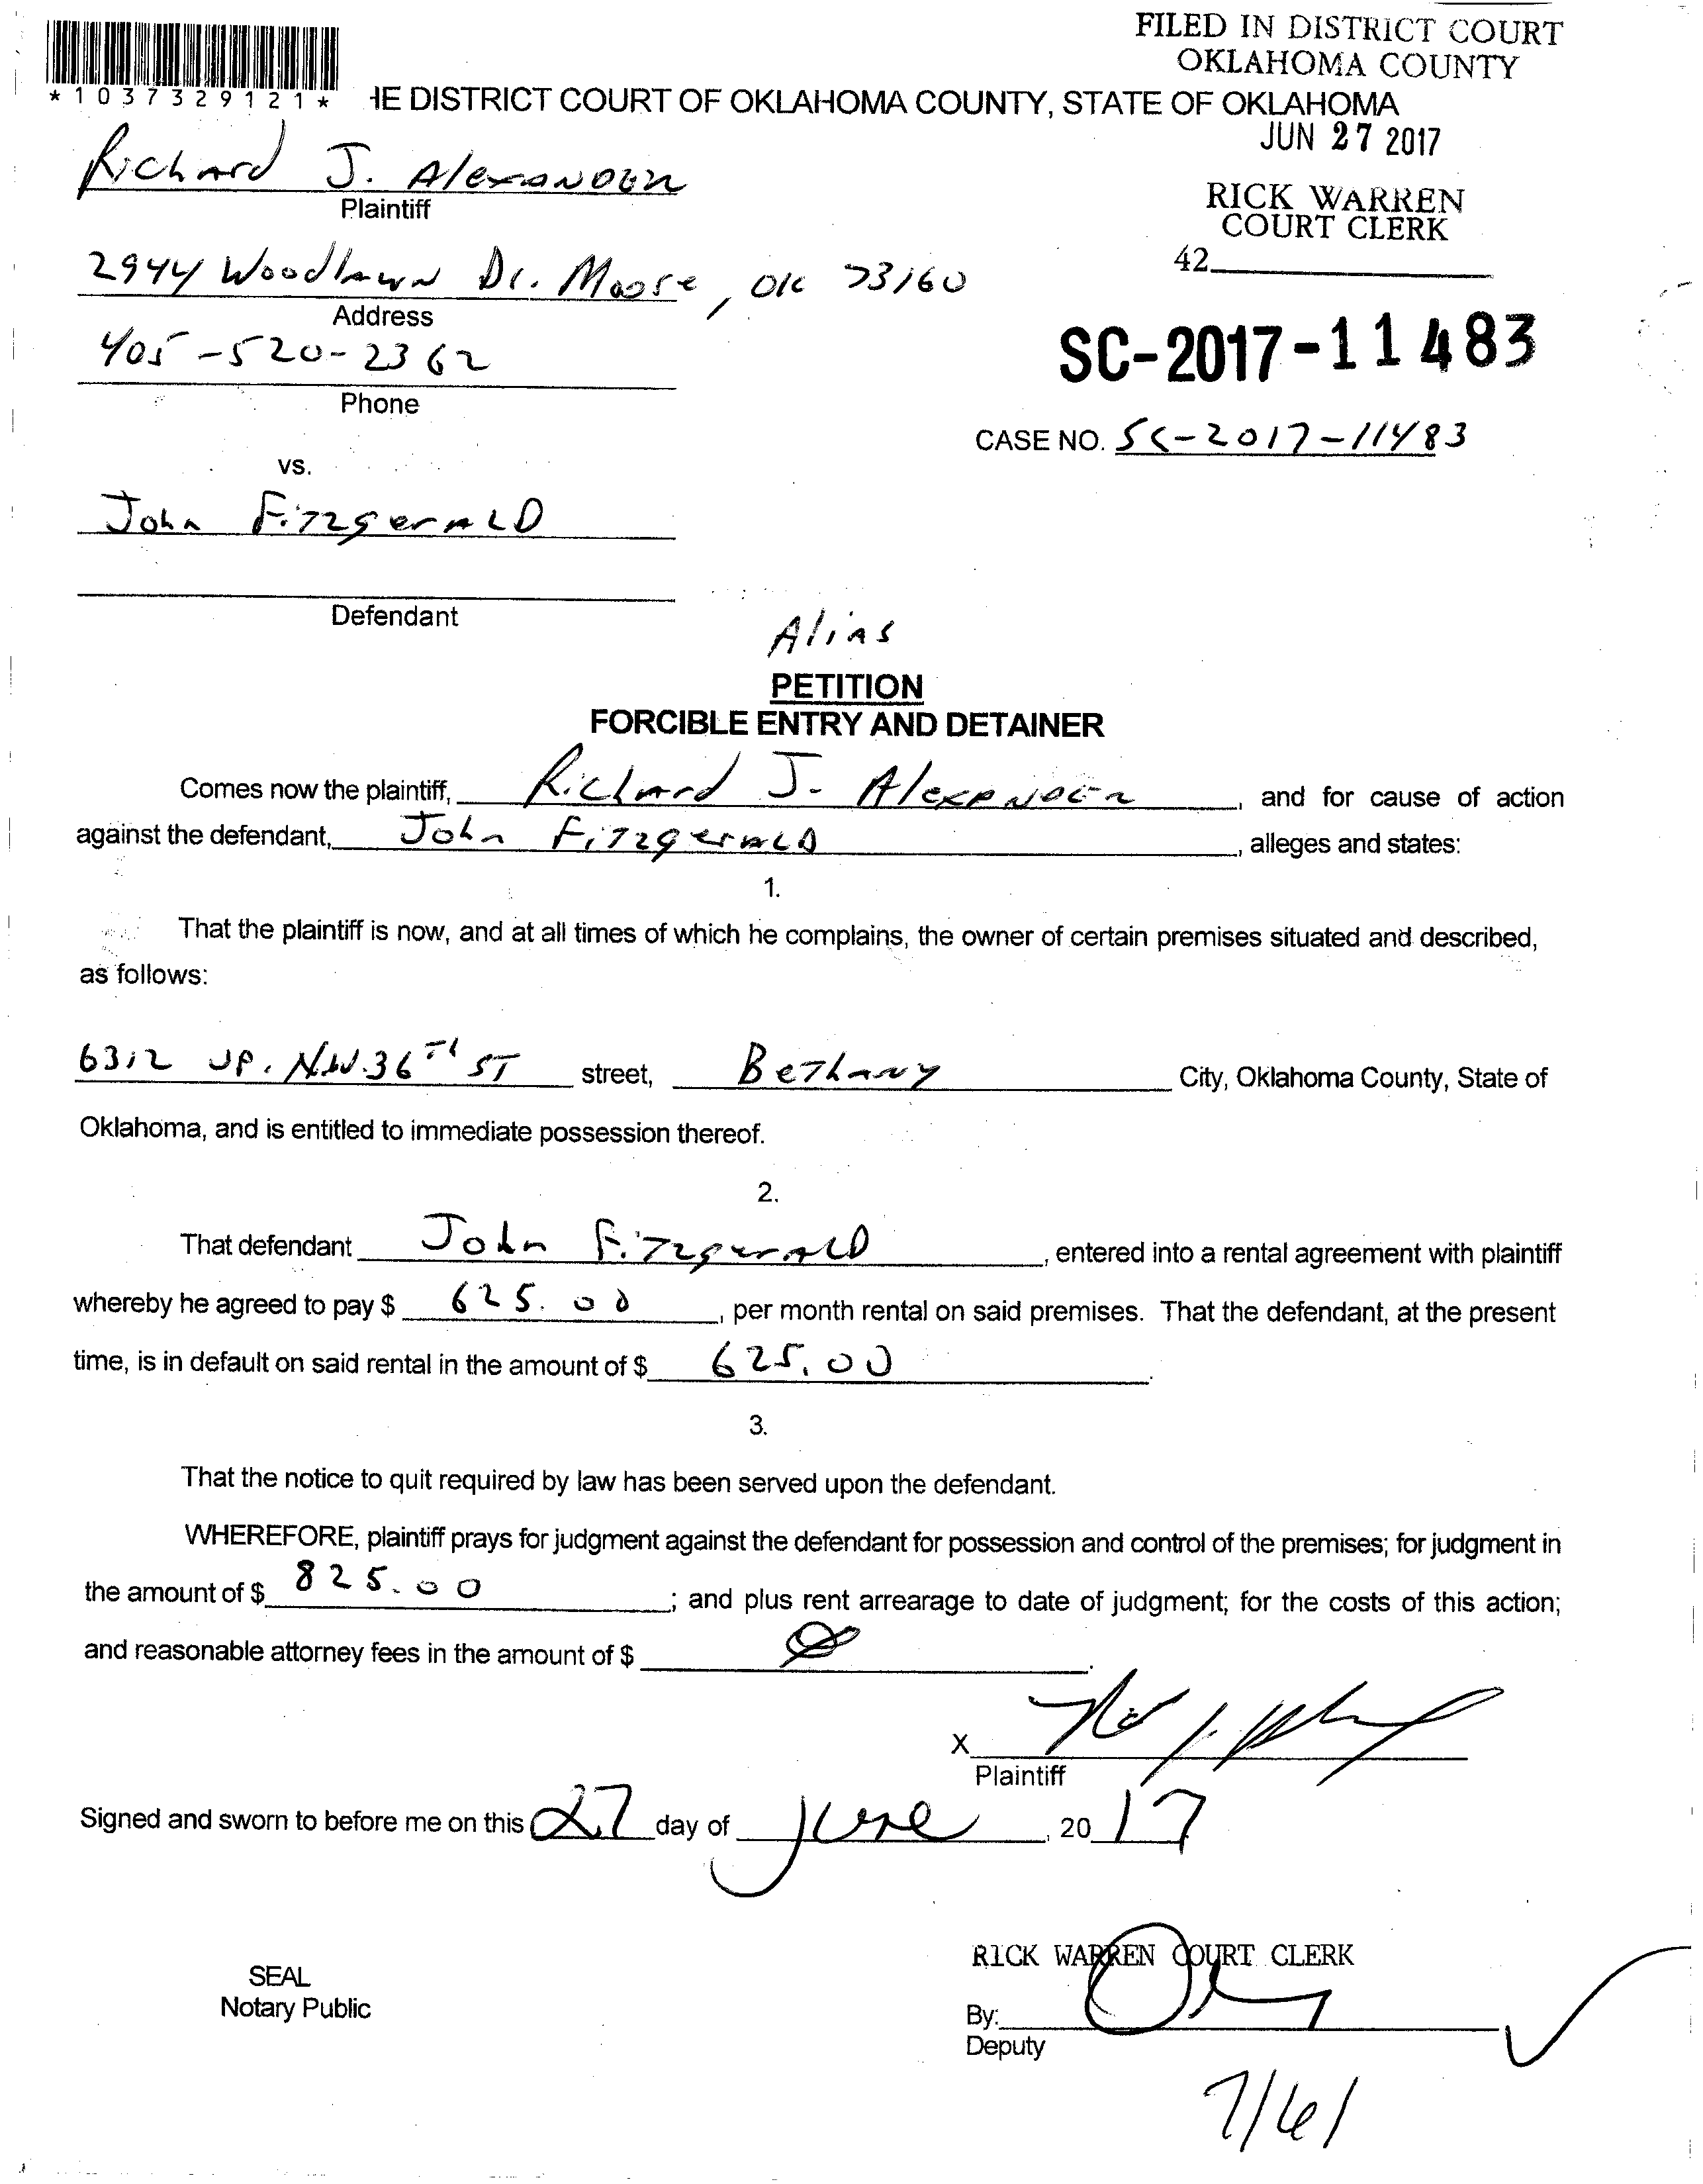 FILED IN DISTRICT COURT
OKLAHOMA COUNTY
* 1 0 3 7 3 2 9 1 2 1 *
HE DISTRICT COURT OF OKLAHOMA COUNTY, STATE OF OKLAHOMA
JUN 27 2017
Richard J. Alexander
Plaintiff
RICK WARREN
COURT CLERK
42
2944 Woodlawn Dr. Moore, OK 73160
Address
405-520-2362
Phone
SC-2017-11483
CASE NO. SC-2017-11483
vs.
John Fitzgerald
Defendant
Alias
PETITION
FORCIBLE ENTRY AND DETAINER
Comes now the plaintiff, Richard J. Alexander, and for cause of action
against the defendant, John Fitzgerald, alleges and states:
1.
That the plaintiff is now, and at all times of which he complains, the owner of certain premises situated and described,
as follows:
6312 UP. N.W. 36TH ST street, Bethany City, Oklahoma County, State of
Oklahoma, and is entitled to immediate possession thereof.
2.
That defendant John Fitzgerald, entered into a rental agreement with plaintiff
whereby he agreed to pay $ 625.00, per month rental on said premises. That the defendant, at the present
time, is in default on said rental in the amount of $ 625.00.
3.
That the notice to quit required by law has been served upon the defendant.
WHEREFORE, plaintiff prays for judgment against the defendant for possession and control of the premises; for judgment in
the amount of $ 825.00; and plus rent arrearage to date of judgment; for the costs of this action;
and reasonable attorney fees in the amount of $ Ø.
X
Plaintiff
Signed and sworn to before me on this 27 day of June, 2017
RICK WARREN COURT CLERK
SEAL
Notary Public
By:
Deputy